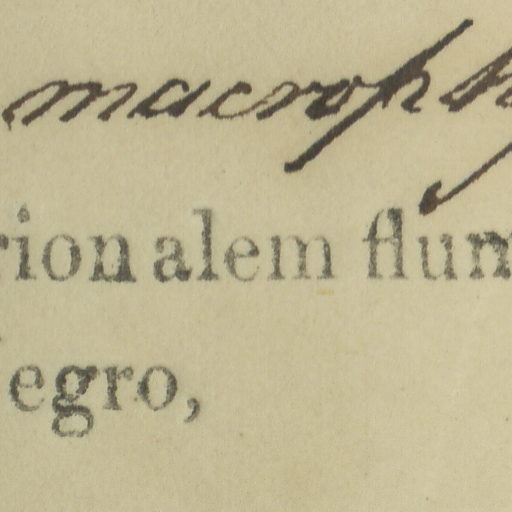 macroph
rionalem flum
egro,